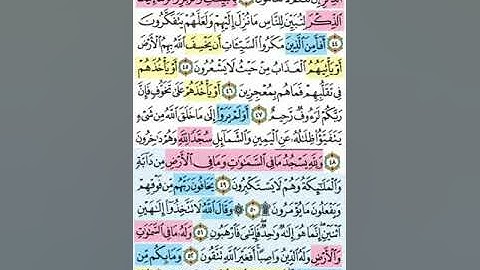 ٱلذِّكْرَ لِتُبَيِّنَ لِلنَّاسِ مَا نُزِّلَ إِلَيْهِمْ وَلَعَلَّهُمْ يَتَفَكَّرُونَ
٤٤ أَفَأَمِنَ ٱلَّذِينَ مَكَرُوا۟ ٱلسَّيِّـَٔاتِ أَن يَخْسِفَ ٱللَّهُ بِهِمُ ٱلْأَرْضَ
أَوْ يَأْتِيَهُمُ ٱلْعَذَابُ مِنْ حَيْثُ لَا يَشْعُرُونَ ٤٥ أَوْ يَأْخُذَهُمْ
فِى تَقَلُّبِهِمْ فَمَا هُم بِمُعْجِزِينَ ٤٦ أَوْ يَأْخُذَهُمْ عَلَىٰ تَخَوُّفٍ فَإِنَّ
رَبَّكُمْ لَرَءُوفٌ رَّحِيمٌ ٤٧ أَوَلَمْ يَرَوْا۟ إِلَىٰ مَا خَلَقَ ٱللَّهُ مِن شَىْءٍ
يَتَفَيَّؤُا۟ ظِلَـٰلُهُۥ عَنِ ٱلْيَمِينِ وَٱلشَّمَآئِلِ سُجَّدًا لِّلَّهِ وَهُمْ دَٰخِرُونَ
٤٨ وَلِلَّهِ يَسْجُدُ مَا فِى ٱلسَّمَـٰوَٰتِ وَمَا فِى ٱلْأَرْضِ مِن دَآبَّةٍ
وَٱلْمَلَـٰٓئِكَةُ وَهُمْ لَا يَسْتَكْبِرُونَ ٤٩ يَخَافُونَ رَبَّهُم مِّن فَوْقِهِمْ
وَيَفْعَلُونَ مَا يُؤْمَرُونَ ۩ ٥٠ ۞ وَقَالَ ٱللَّهُ لَا تَتَّخِذُوٓا۟ إِلَـٰهَيْنِ
ٱثْنَيْنِ إِنَّمَا هُوَ إِلَـٰهٌ وَٰحِدٌ فَإِيَّـٰىَ فَٱرْهَبُونِ ٥١ وَلَهُۥ مَا فِى ٱلسَّمَـٰوَٰتِ
وَٱلْأَرْضِ وَلَهُ ٱلدِّينُ وَاصِبًا أَفَغَيْرَ ٱللَّهِ تَتَّقُونَ ٥٢ وَمَا بِكُم مِّن